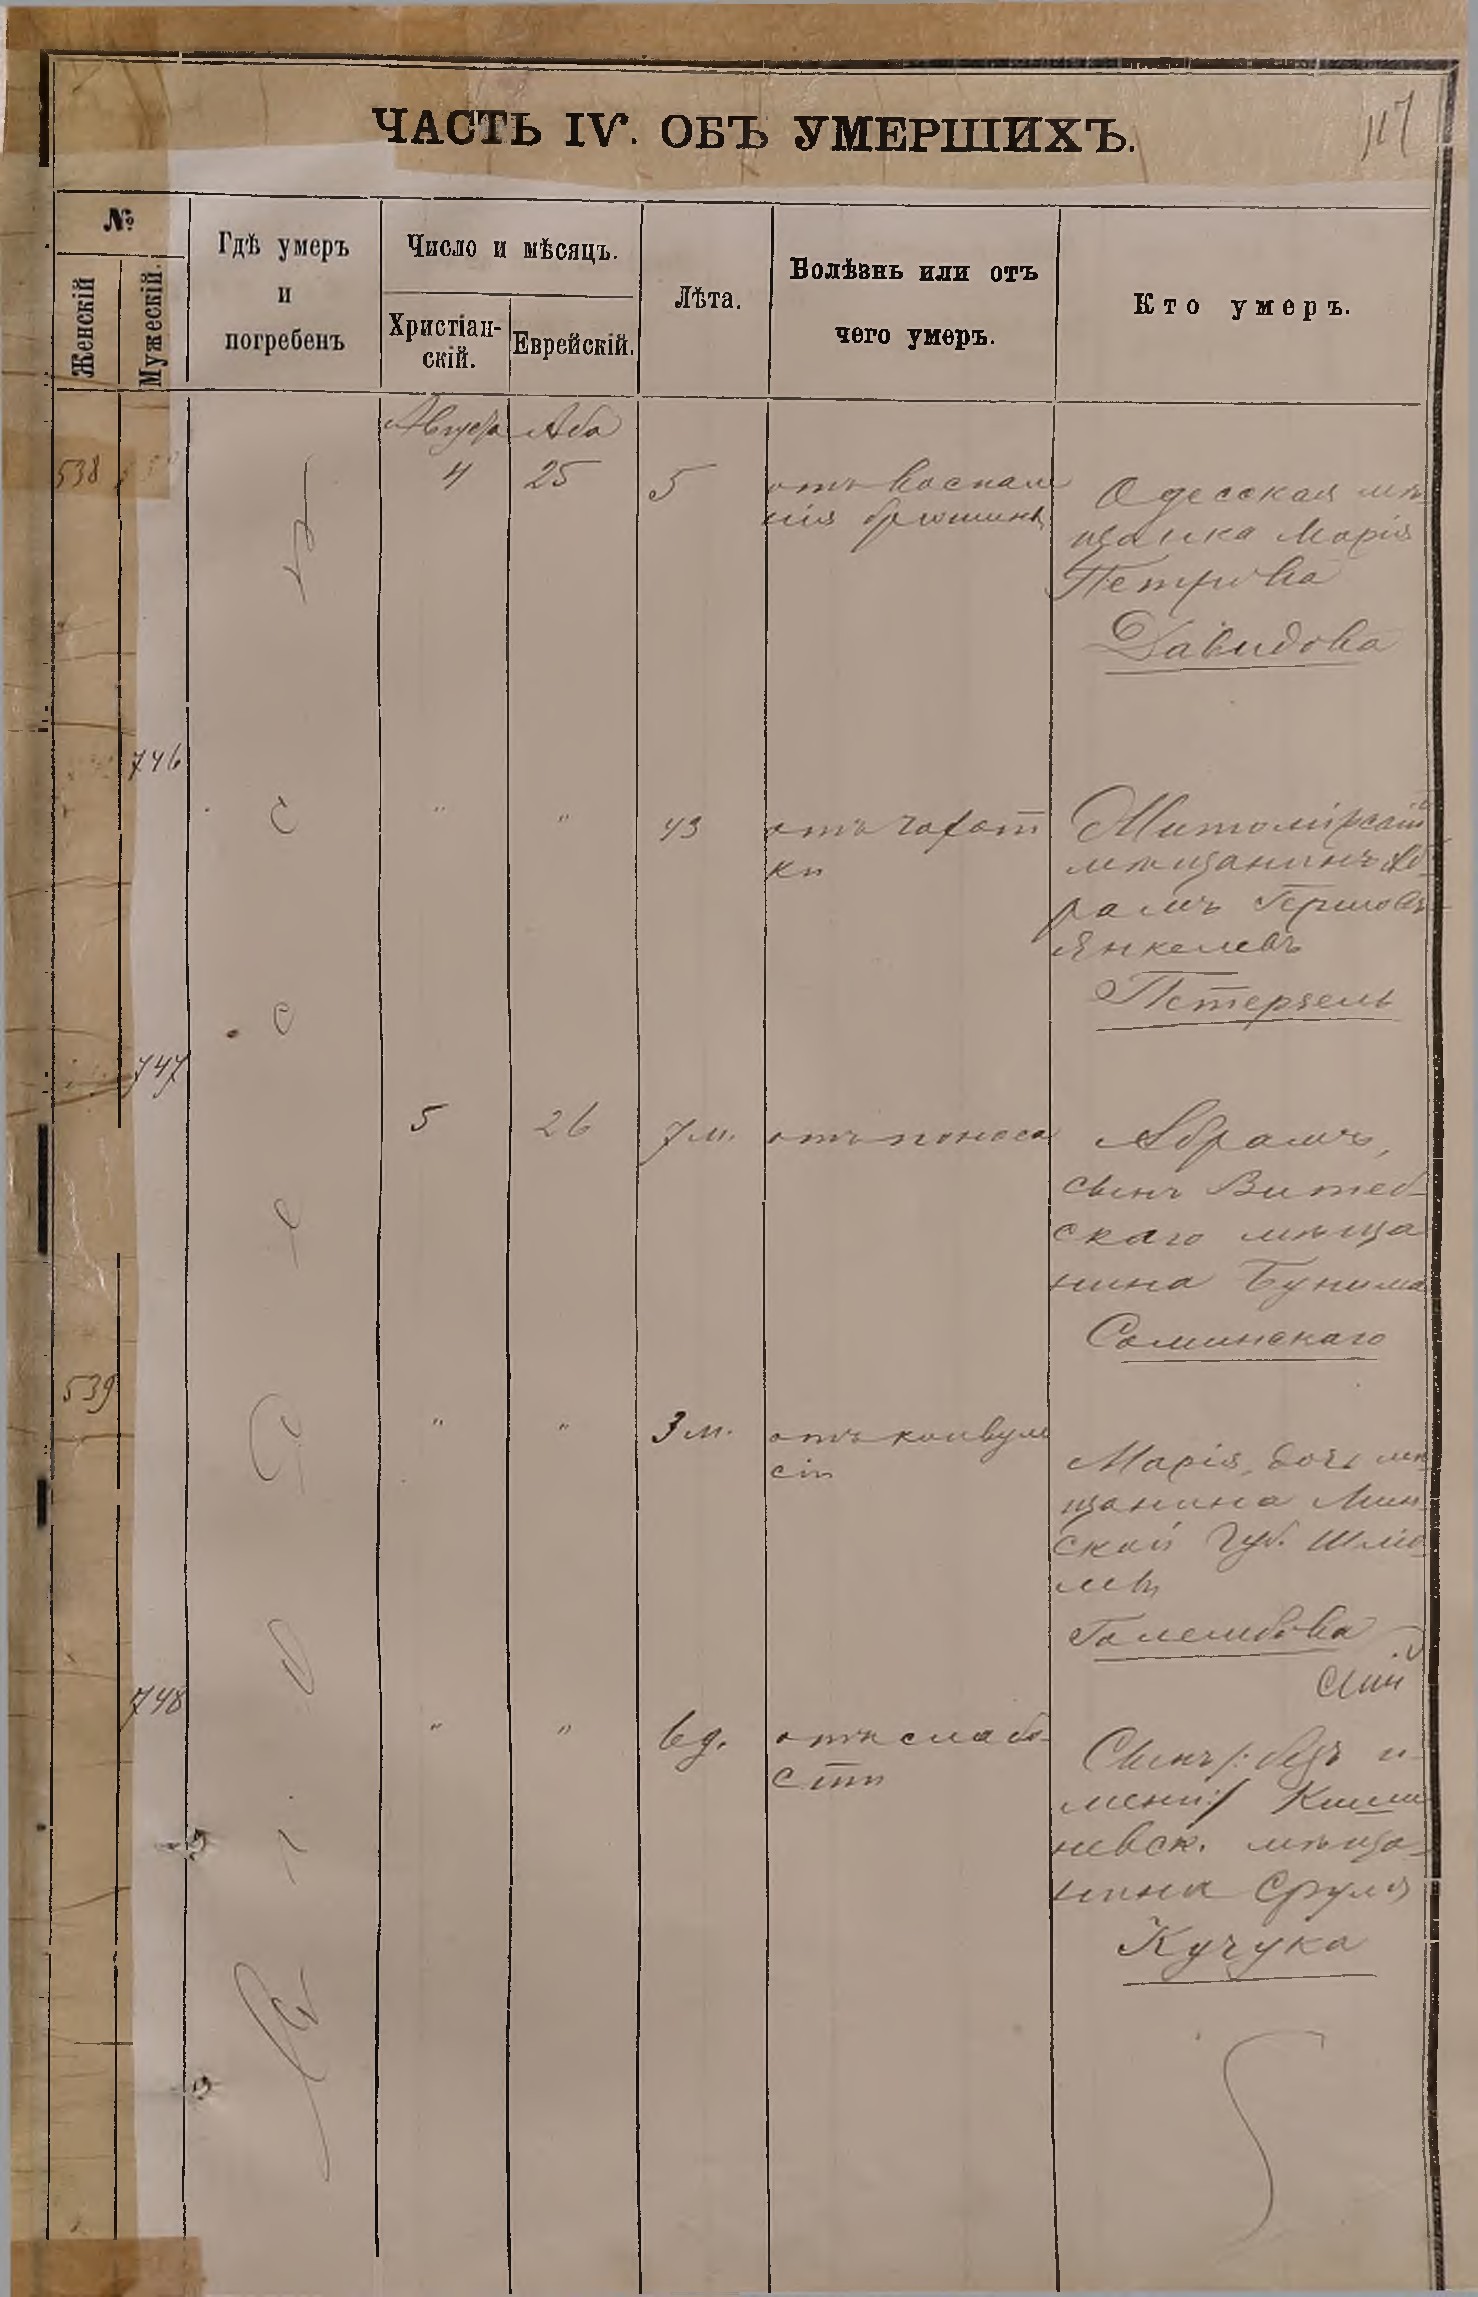 ЧАСТЬ IV. ОБЪ УМЕРШИХЪ.
117
№
Женскій
Мужескій.
Гдѣ умеръ
и
погребенъ
Число и мѣсяцъ.
Христіан-
скій.
Еврейскій.
Лѣта.
Болѣзнь или отъ
чего умеръ.
Кто умеръ.
Августа Аба
538 4 25 5 отъ воспале
нія брюшины
Одесская мѣ
щанка Марія
Петрова
Давидова
746
" " 43 отъ чахот
ки
Житомірскій
мѣщанинъ Аб
рамъ Гершовъ
Янкелевъ
Петерзель
747
5 26 7 м. отъ поноса
Абрамъ,
сынъ Витеб-
скаго мѣща
нина Бунима
Соминскаго
539
" " 3 м. отъ конвуль
сіи
Марія, дочь мѣ
щанина Мин
ской губ. Шліо
мы
Голембовa
748
" " 6 д. отъ слабо-
сти
Сынъ /: безъ и-
мени :/ Киши
невск. мѣща-
нина Сруля
Кучука
Одесса